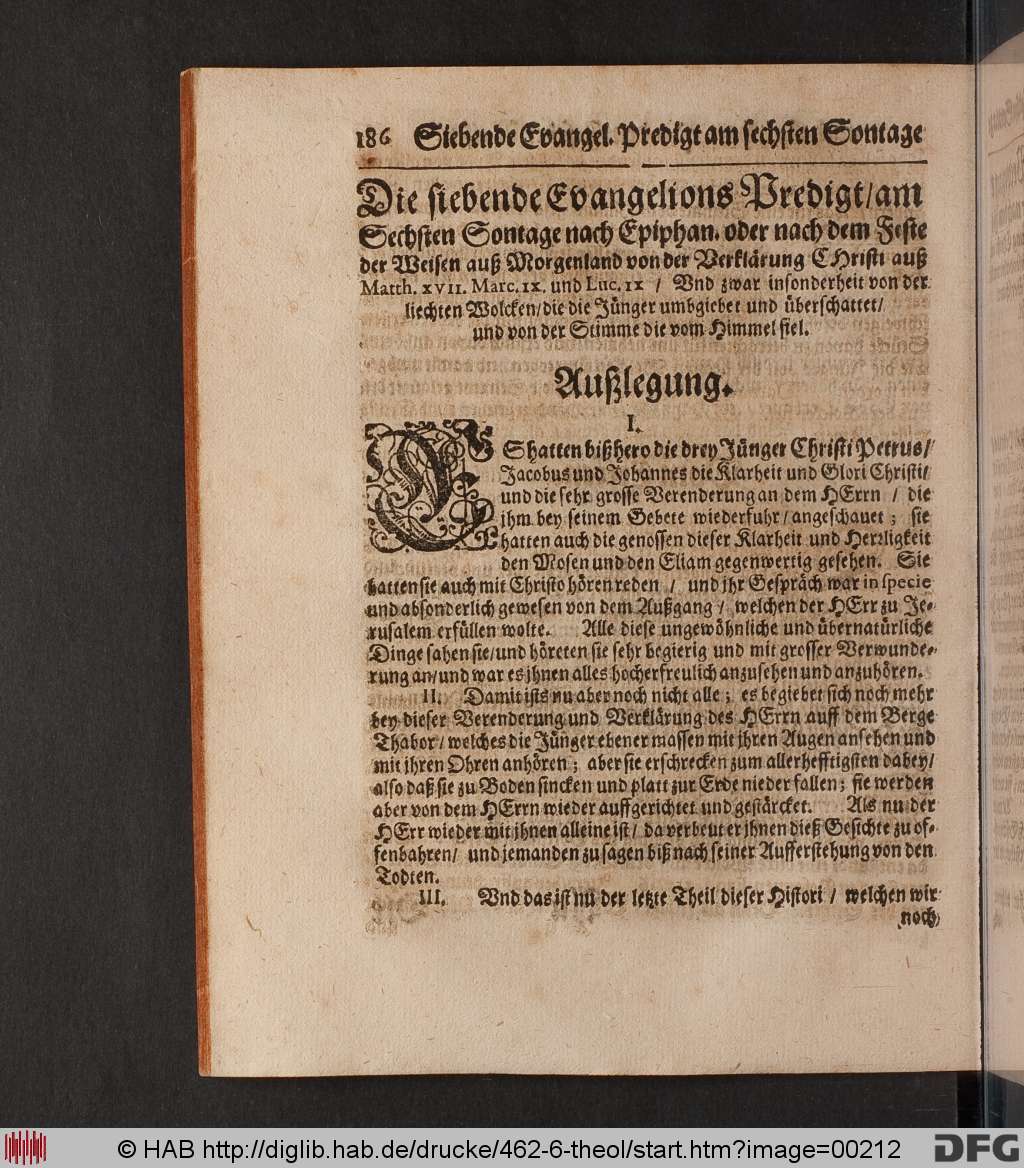 186 Siebende Evangel. Predigt am sechsten Sontage
Die siebende Evangelions Predigt/am
Sechsten Sontage nach Epiphan. oder nach dem Feste
der Weisen auß Morgenland von der Verklärung CHristi auß
Matth. XVII. Marc. IX. und Luc. IX / Vnd zwar insonderheit von der
liechten Wolcken/die die Jünger umbgiebet und überschattet/
und von der Stimme die vom Himmel fiel.
Außlegung.
I.
ES hatten bißhero die drey Jünger Christi Petrus/
Jacobus und Johannes die Klarheit und Glori Christi/
und die sehr grosse Verenderung an dem HErrn / die
jhm bey seinem Gebete wiederfuhr/angeschauet; sie
hatten auch die genossen dieser Klarheit und Herrligkeit
den Mosen und den Eliam gegenwertig gesehen. Sie
hatten sie auch mit Christo hören reden / und jhr Gespräch war in specie
und absonderlich gewesen von dem Außgang / welchen der HErr zu Je-
rusalem erfüllen wolte. Alle diese ungewöhnliche und übernatürliche
Dinge sahen sie/und höreten sie sehr begierig und mit grosser Verwunde-
rung an/und war es jhnen alles hocherfreulich anzusehen und anzuhören.
II. Damit ists nu aber noch nicht alle; es begiebet sich noch mehr
bey dieser Verenderung und Verklärung des HErrn auff dem Berge
Thabor/welches die Jünger ebener massen mit jhren Augen ansehen und
mit jhren Ohren anhören; aber sie erschrecken zum allerhefftigsten dabey/
also daß sie zu Boden sincken und platt zur Erde nieder fallen; sie werden
aber von dem HErrn wieder auffgerichtet und gestärcket. Als nu der
HErr wieder mit jhnen alleine ist/ da verbeut er jhnen dieß Gesichte zu of-
fenbahren/ und jemanden zu sagen biß nach seiner Aufferstehung von den
Todten.
III. Vnd das ist nu der letzte Theil dieser Histori / welchen wir
noch
© HAB http://diglib.hab.de/drucke/462-6-theol/start.htm?image=00212
DFG